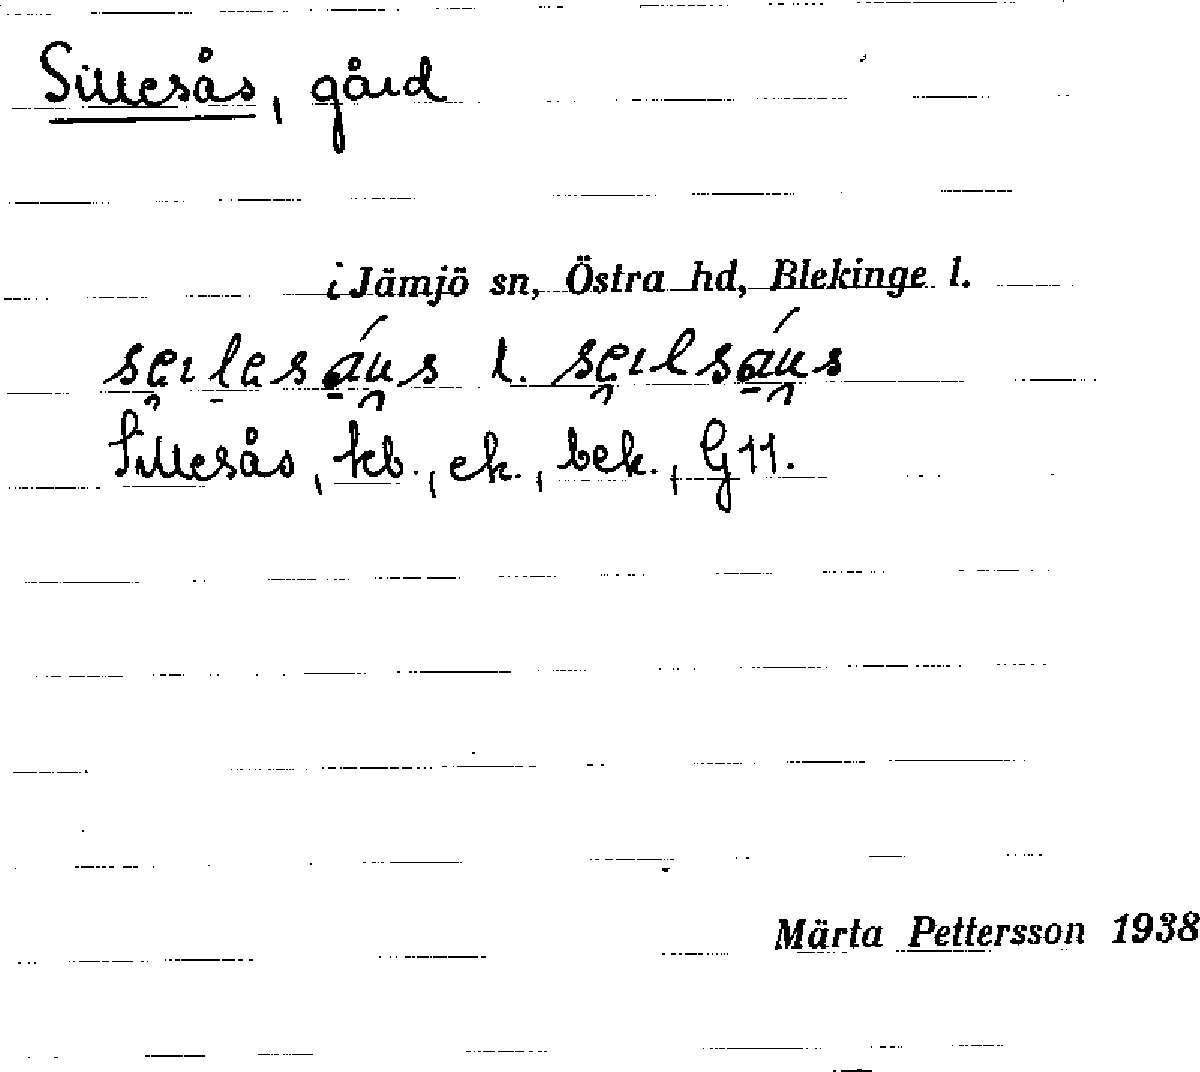 Sillesås, gård
i Jämjö sn, Östra hd, Blekinge l.
seılesáus l. seılsáus
Sillesås, kb., ek., bek., G11.
Märta Pettersson 1938